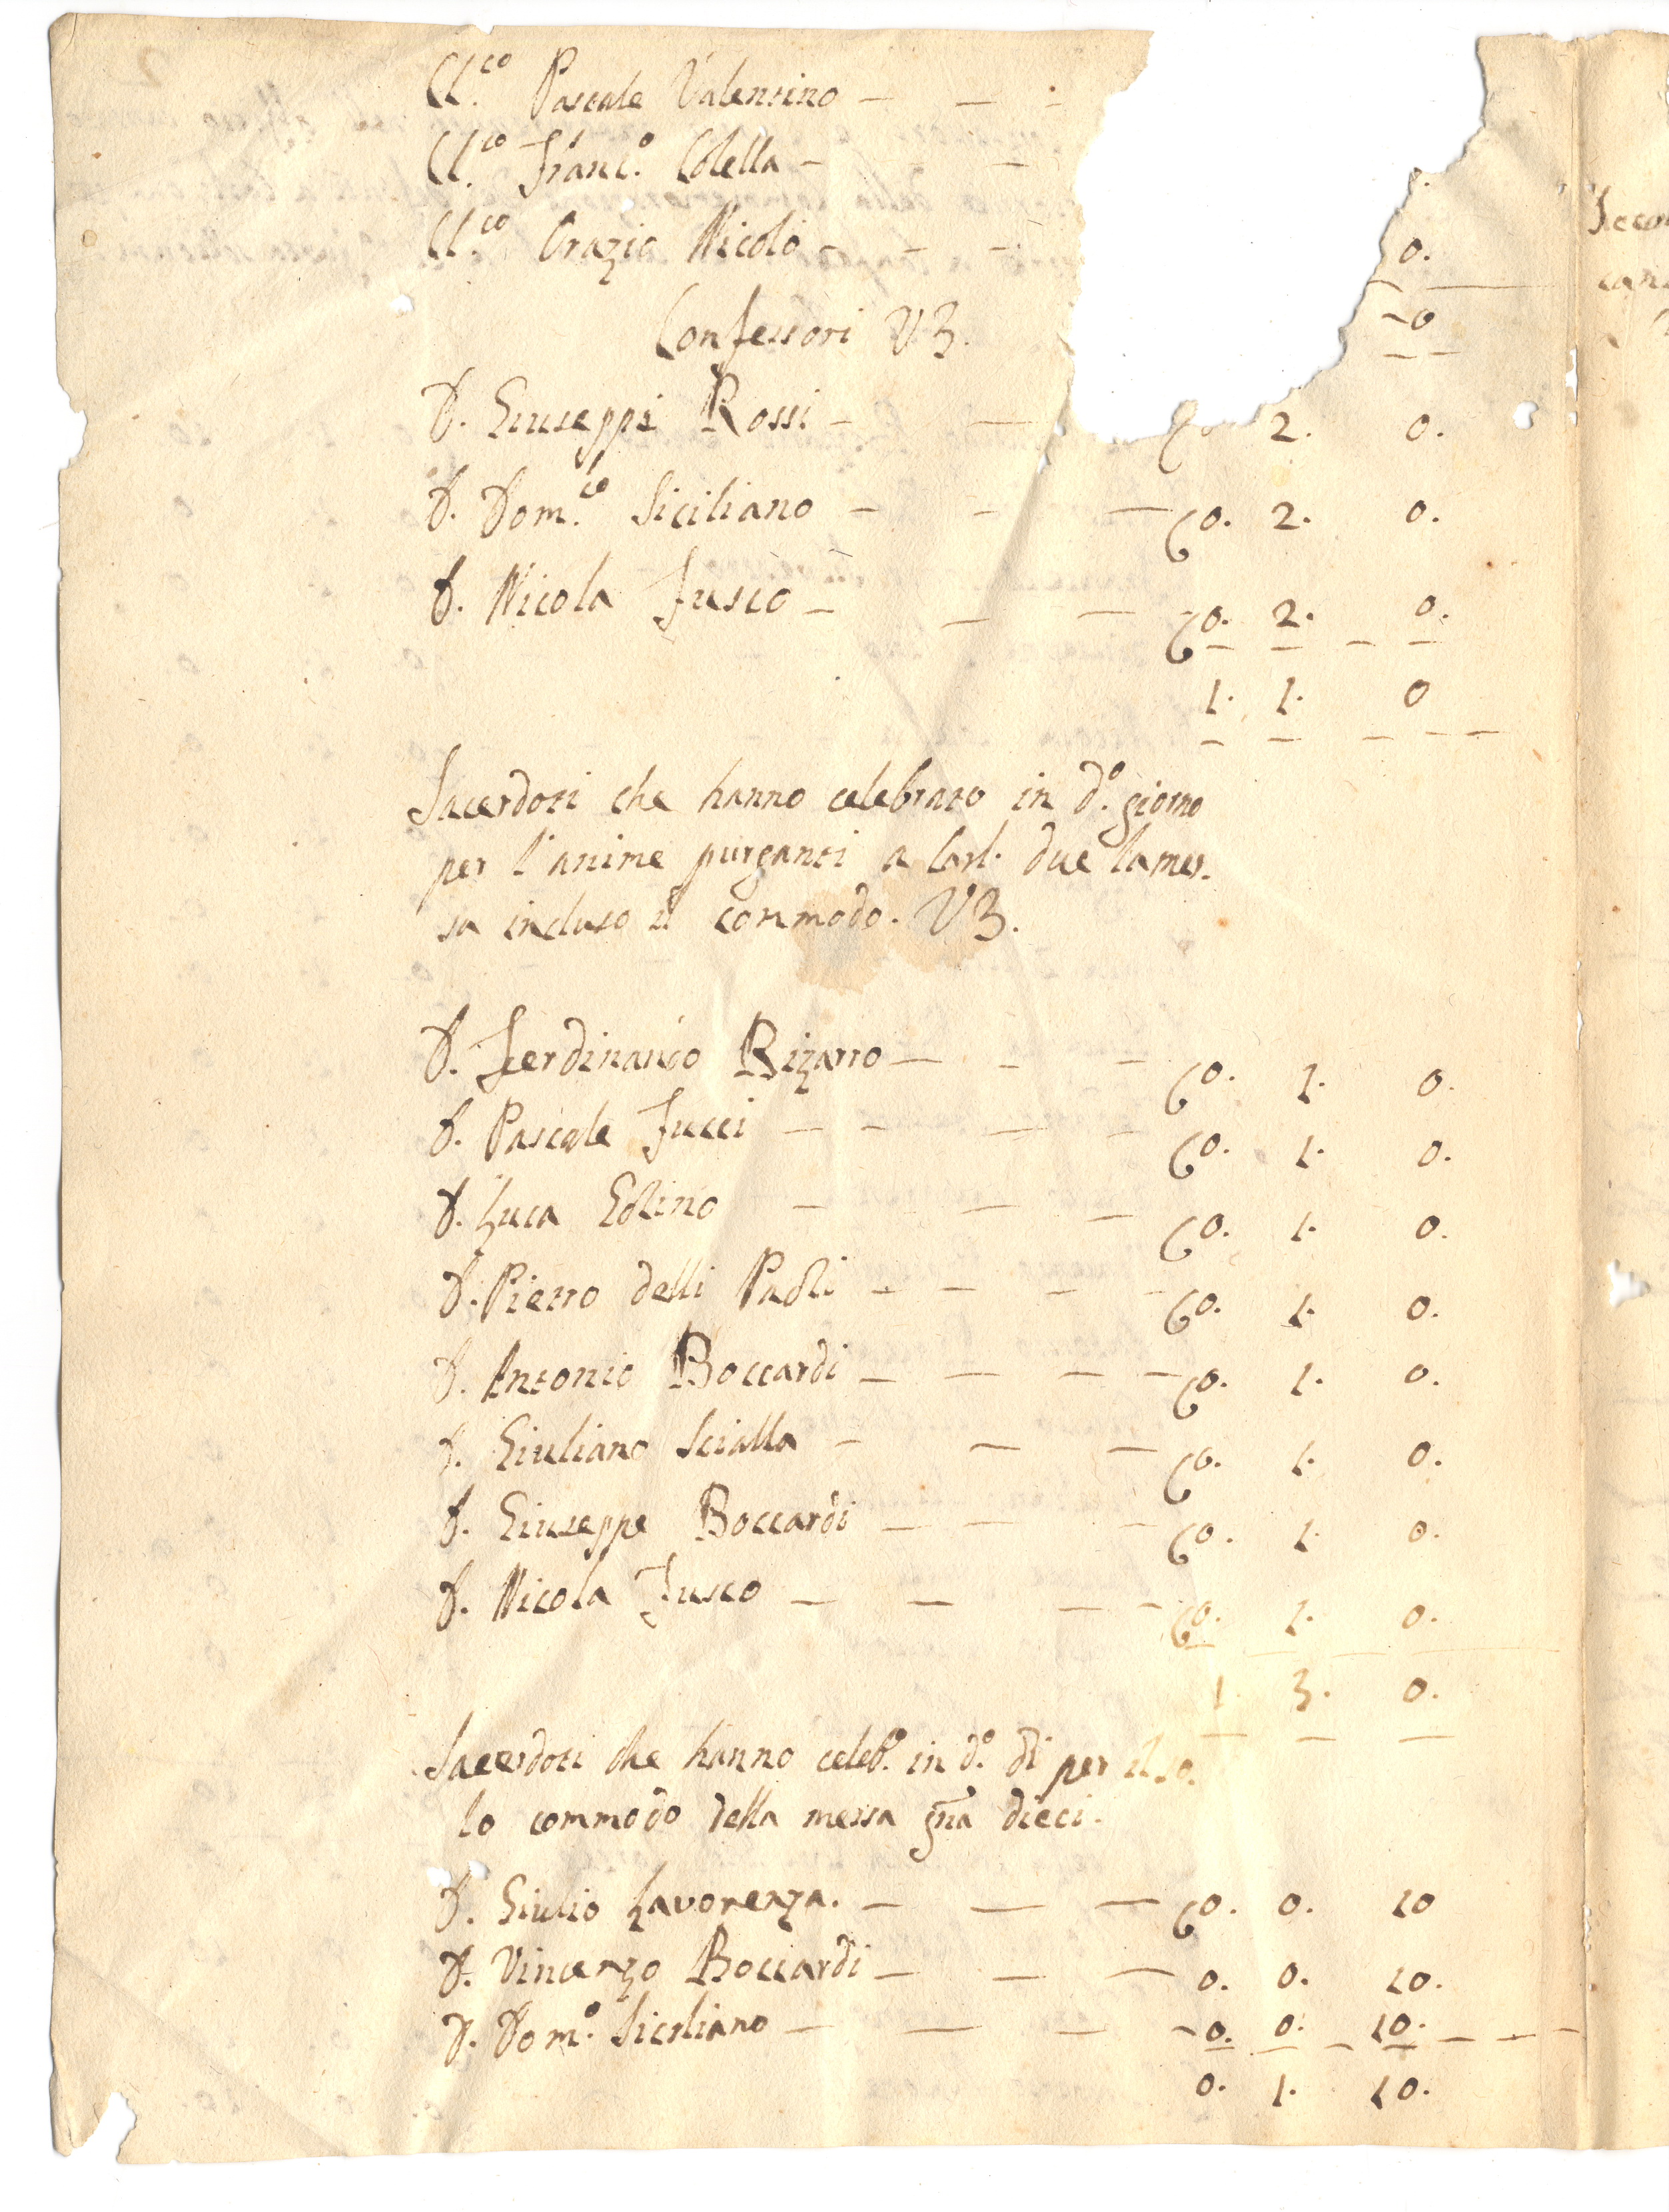 Cl.co Pascale Valentino - - -
Cl.co Franc.o Colella - -
Cl.co Orazio Nicolò - - - 0.
-0
Confessori V3.
D. Giuseppe Rossi - - 2. 0.
D. Dom.co Siciliano - - - 0. 2. 0.
D. Nicola Fusco - - - 0. 2. 0.
1. 1. 0
Sacerdoti che hanno celebrato in d.o giorno
per l'anime purganti a Carl. due la mes.
sa incluso il commodo. V3.
D. Ferdinando Bizarro - - - 0. 1. 0.
D. Pascale Fucci - - - - 0. 1. 0.
D. Luca - - - 0. 1. 0.
D. Pietro delli Paoli - - - - 0. 1. 0.
D. Antonio Boccardi - - - - 0. 1. 0.
D. Giuliano Scialla - - - 0. 1. 0.
D. Giuseppe Boccardi - - - 0. 1. 0.
D. Nicola Fusco - - - - 0. 1. 0.
1. 3. 0.
Sacerdoti che hanno celeb.o in d.o dì per il so.
lo commodo della messa gna dieci.
D. Giulio Lavorenza. - - - 0. 0. 10
D. Vincenzo Boccardi - - - 0. 0. 10.
D. Dom.o Siciliano - - - - 0. 0. 10.
0. 1. 10.